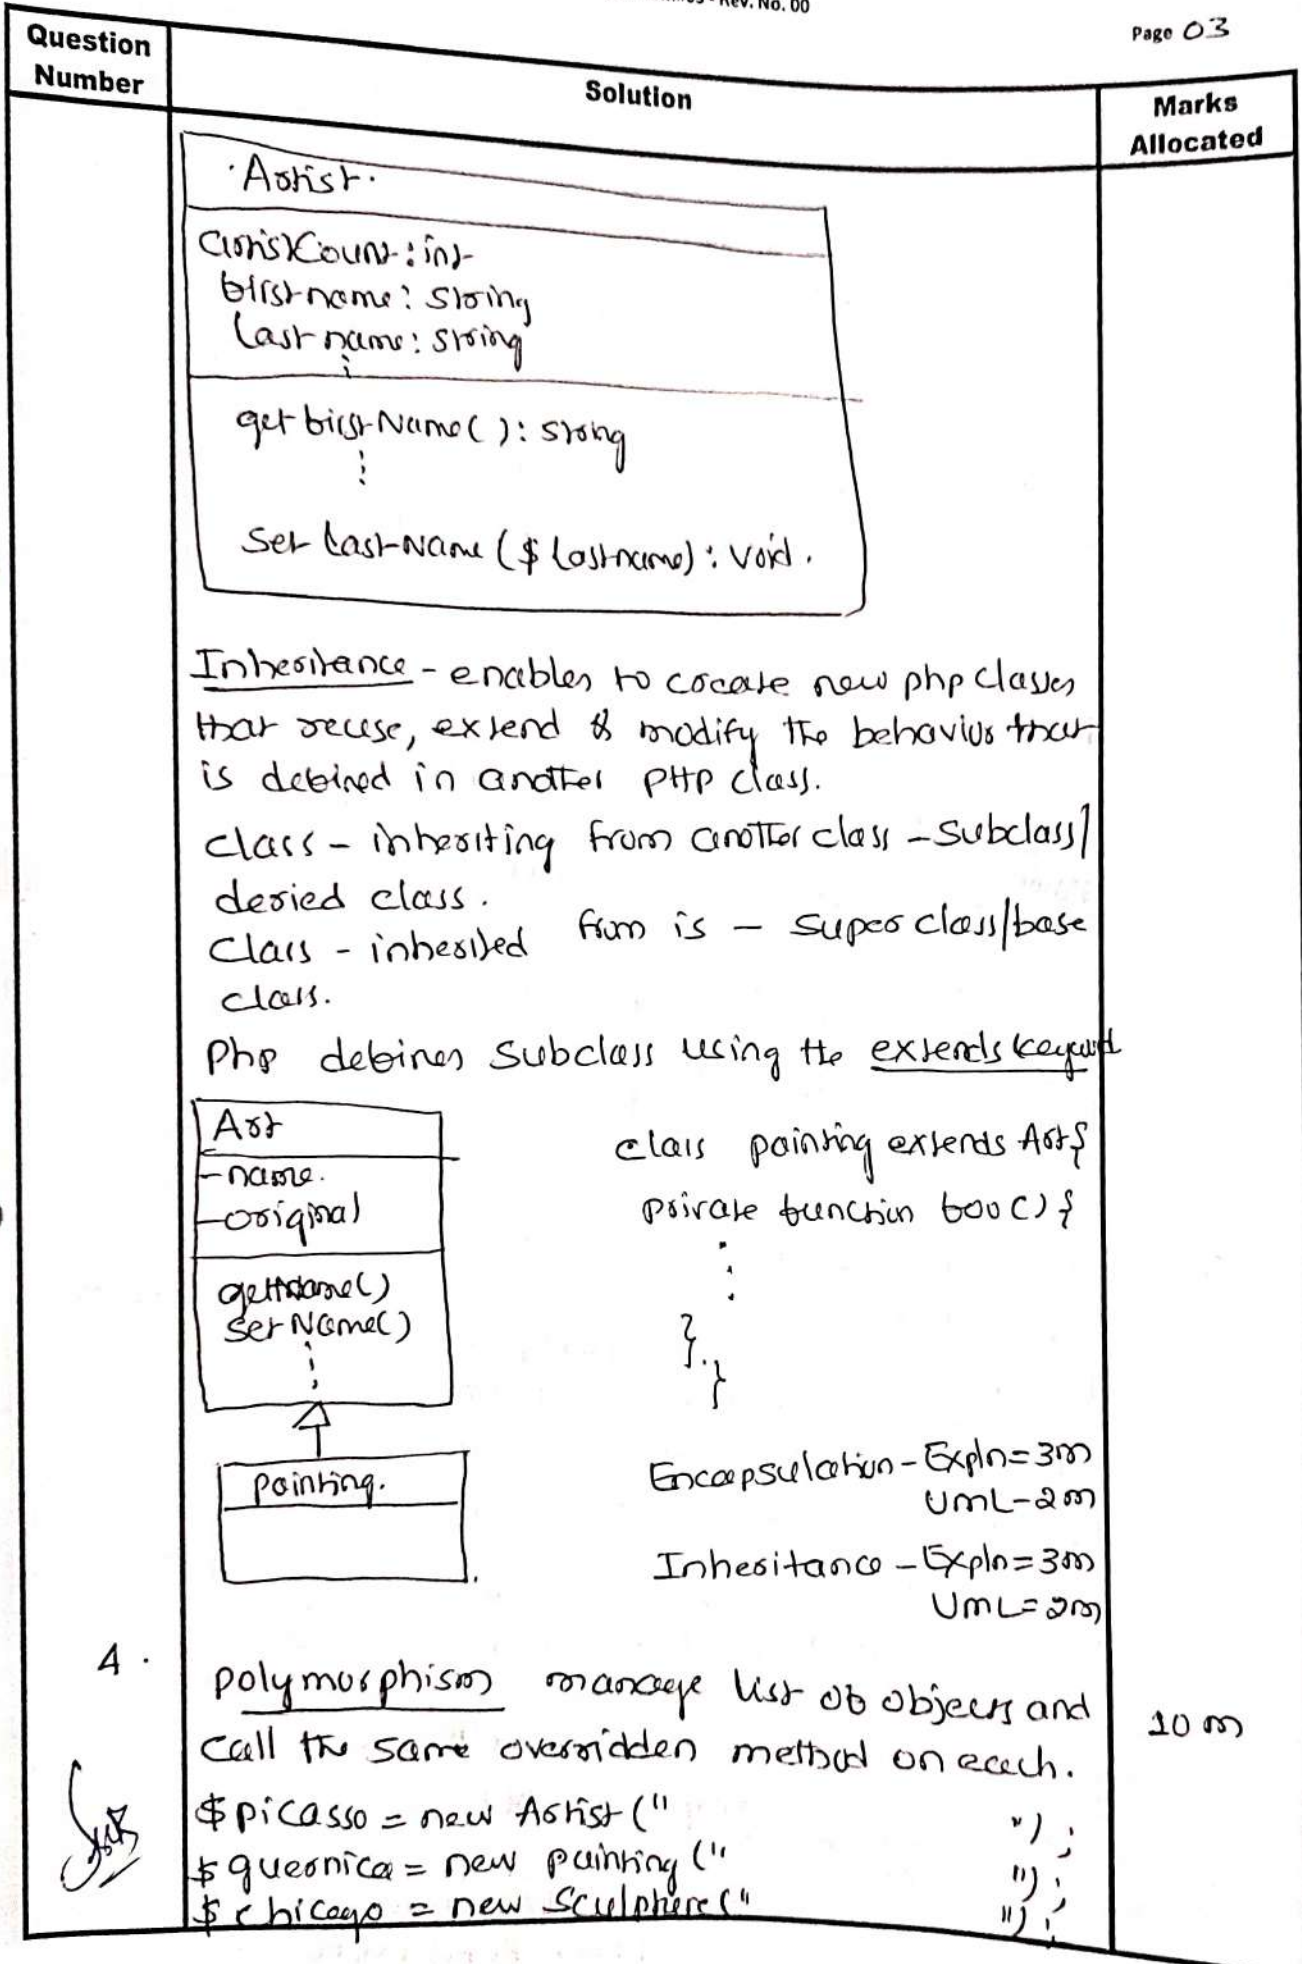 Rev. No. 00
Page 03
Question Number
Solution
Marks Allocated
Artist.
artistCount: int
firstname: string
last name: string
getfirstName(): string
Set LastName ($ lastname): void.
Inheritance - enables to create new php classes
that reuse, extend & modify the behavior that
is defined in another PHP class.
class - inheriting from another class - Subclass/
deried class.
Class - inherited from is - super class/base
class.
Php defines Subclass using the extends keyword
Art
- name.
- original
getName()
setName()
painting.
class painting extends Art{
private function foo() {
}
}
Encapsulation - Expln = 3m
UML - 2m
Inheritance - Expln = 3m
UML = 2m
4.
polymorphism manage list of objects and
call the same overridden method on each.
10 m
$picasso = new Artist(" ");
$guernica = new painting (" ");
$chicago = new Sculpture(" ");